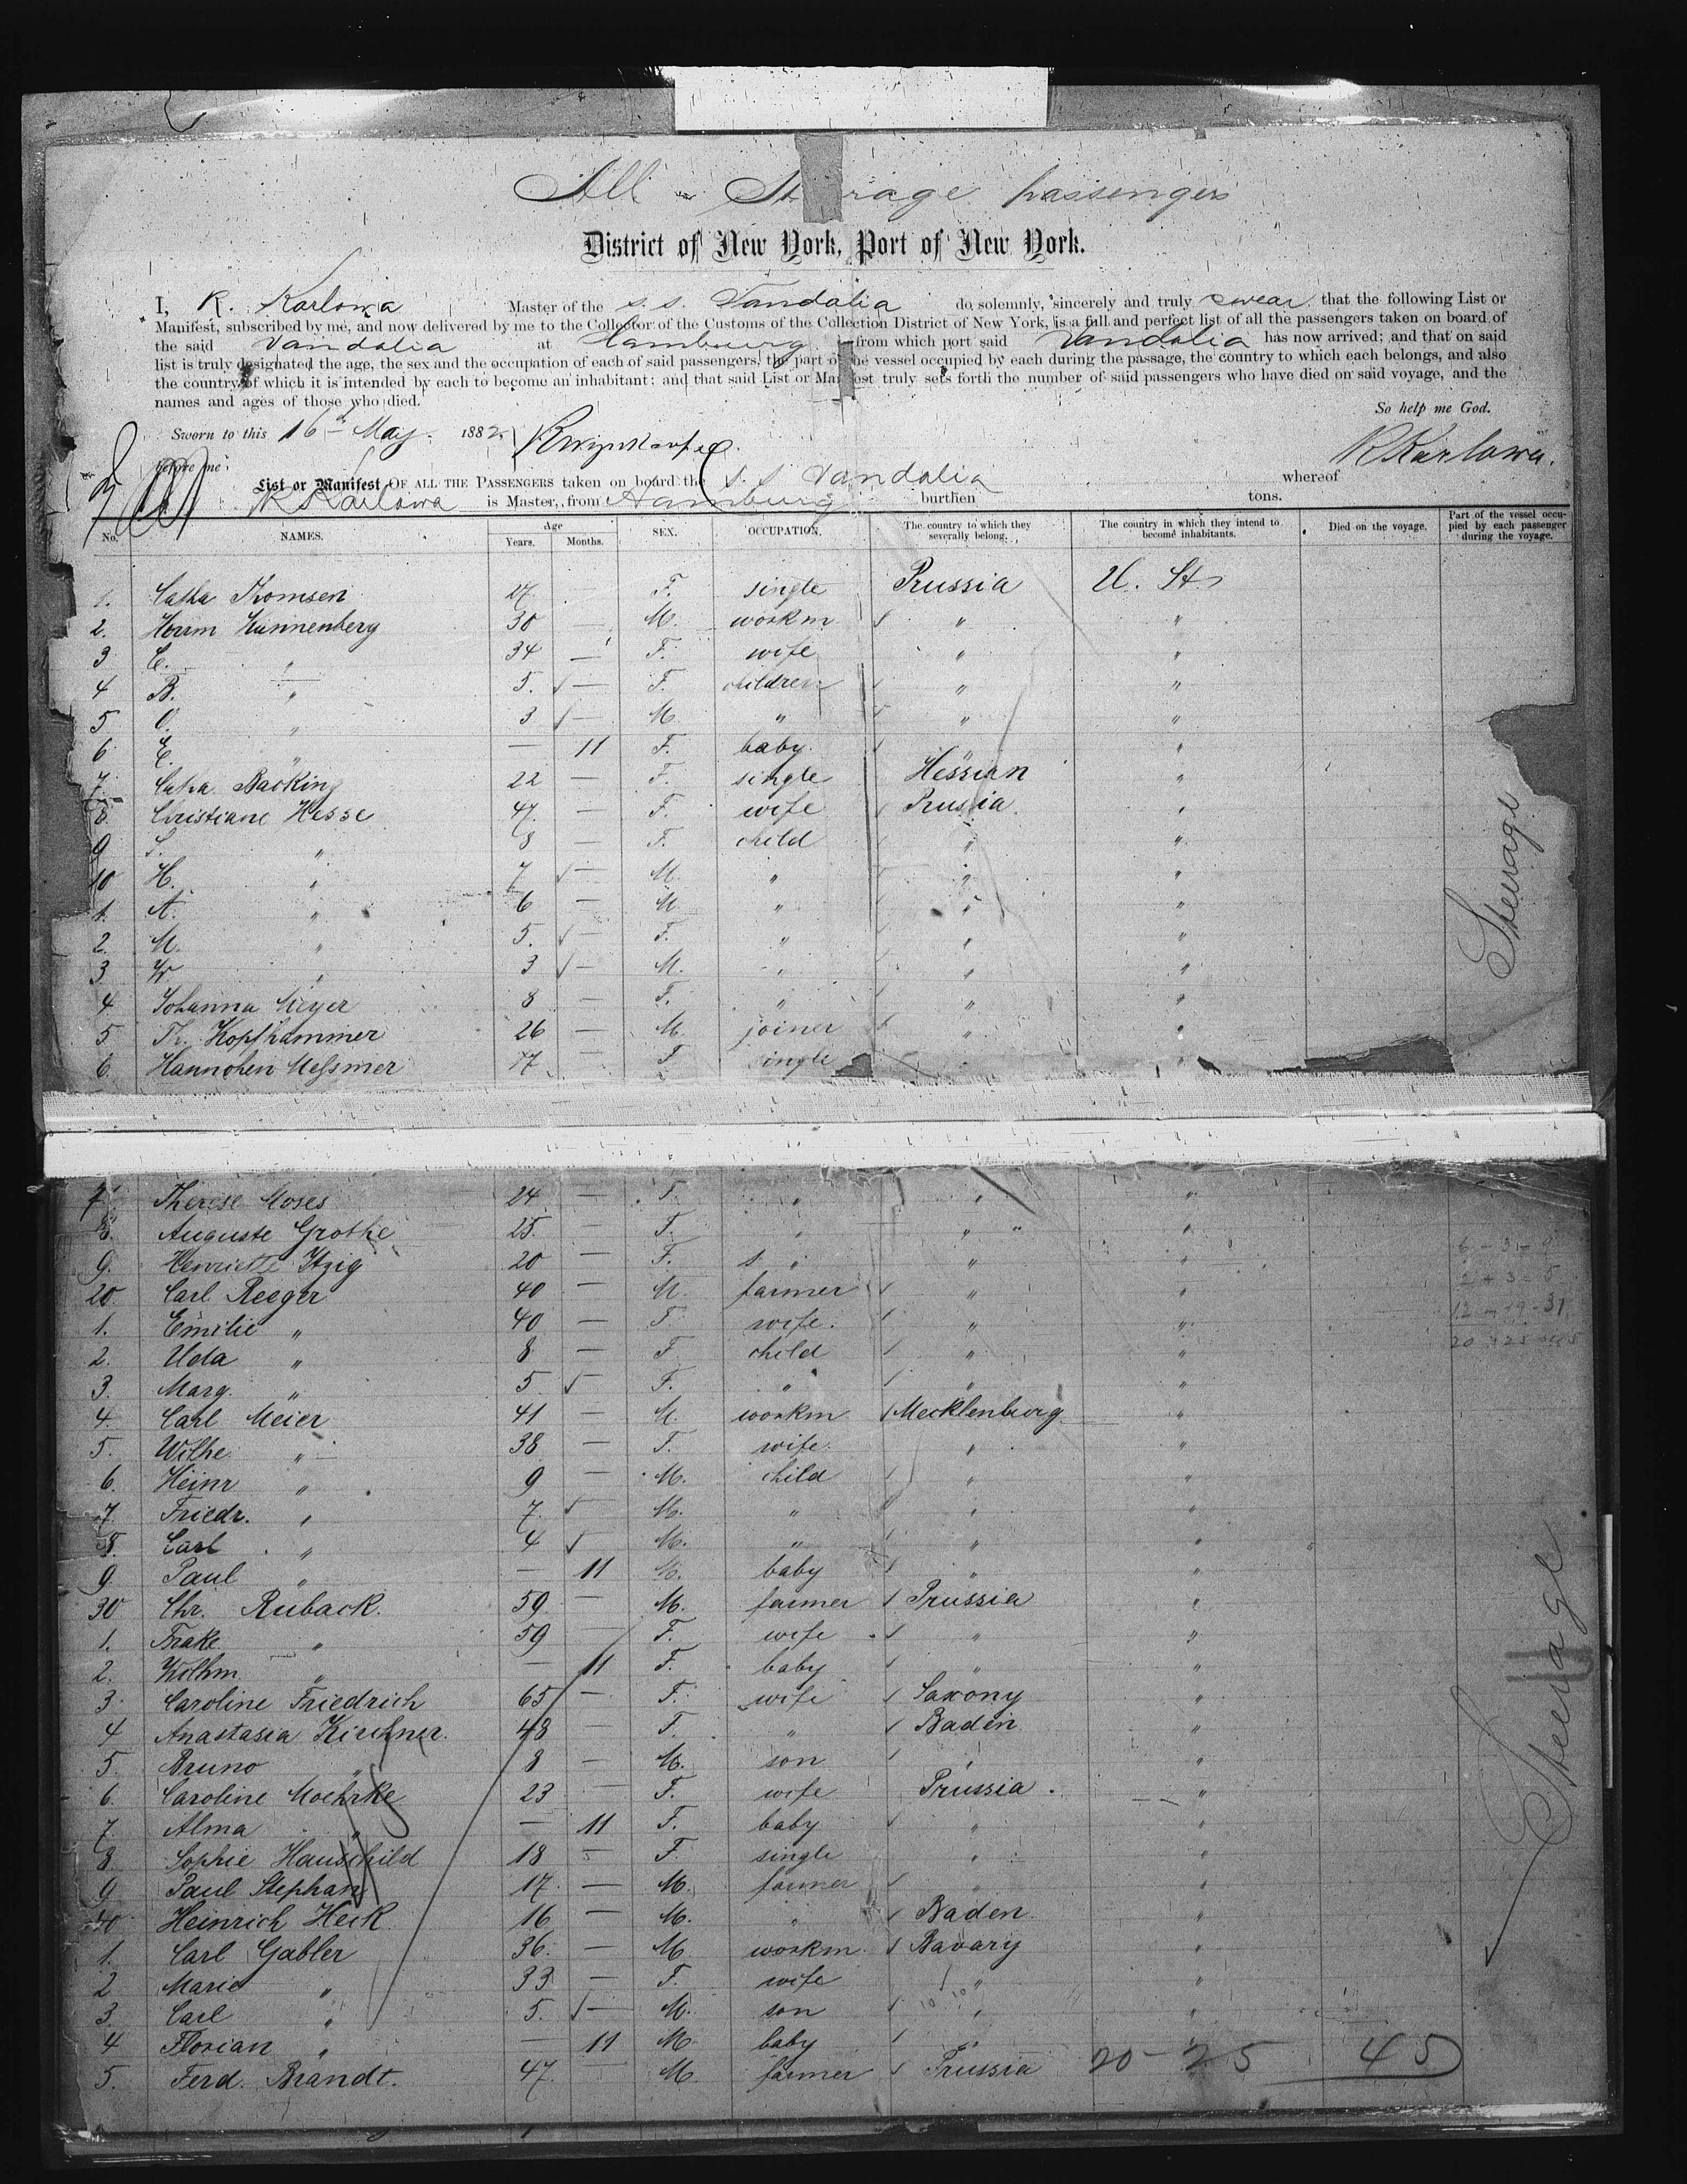 All Steerage passengers
District of New York, Port of New York.
I, R. Karlowa Master of the s. s. Vandalia do solemnly, sincerely and truly swear that the following List or
Manifest, subscribed by me, and now delivered by me to the Collector of the Customs of the Collection District of New York, is a full and perfect list of all the passengers taken on board of
the said Vandalia at Hambourg from which port said Vandalia has now arrived; and that on said
list is truly designated the age, the sex and the occupation of each of said passengers, the part of the vessel occupied by each during the passage, the country to which each belongs, and also
the country of which it is intended by each to become an inhabitant; and that said List or Manifest truly sets forth the number of said passengers who have died on said voyage, and the
names and ages of those who died.
So help me God.
Sworn to this 16 May. 1882
R Karlowa.
before me
List or Manifest OF ALL THE PASSENGERS taken on board the S. S Vandalia whereof
R Karlowa is Master, from Hamburg burthen tons.
No. NAMES. Age Years. Months. SEX. OCCUPATION. The country to which they severally belong. The country in which they intend to become inhabitants. Died on the voyage. Part of the vessel occupied by each passenger during the voyage.
1. Catha Thomsen 27 F. single Prussia U. St.
2. Herrm Hünnenberg 30 — M. workm " "
3 C. " 34 — F. wife " "
4 B. " 5. — F. children " "
5 O. " 3 — M. " " "
6 E. " — 11 F. baby " "
7. Catha Backing 22 — F. single Hessian "
8 Christiane Hesse 47. — F. wife Prussia "
9 S. " 8 — F. child " "
10 H. " 7 — M. " " "
1. A. " 6 — M. " " "
2. M. " 5. — F. " " "
3 W " 3 — M. " " "
4 Johanna Meyer 8 — F. " " "
5 Th. Kopfhammer 26 — M. joiner " "
6. Hannchen Messmer 17. — F single " "
7. Therese Moses 24 — F. " " "
8. Auguste Grothe 25. — F. " " "
9. Henriette Itzig 20 — F. s " " "
20. Carl Reeger 40 — M. farmer " "
1. Emilie " 40 — F wife. " "
2. Uda " 8 — F child " "
3. Marg. " 5 — F. " " "
4. Carl Meier 41 — M. workm Mecklenburg "
5. Wilhe " 38 — F. wife. " "
6. Heinr " 9 — M. child " "
7. Friedr. " 7. M. " " "
8. Carl " 4 M. " " "
9 Paul " — 11 M. baby " "
30 Chr. Ruback. 59. — M. farmer Prussia "
1. Brake " 59 — F. wife " "
2. Wilhm " — 11 F. baby " "
3. Caroline Friedrich 65 — F. wife Saxony "
4 Anastasia Kirchner. 48 — F. " Baden "
5. Bruno " 8 — M. son " "
6. Caroline Moehrke 23 — F. wife Prussia. "
7. Alma " — 11 F. baby " "
8. Sophie Hauschild 18 — F single " "
9 Paul Stephan 17. — M. farmer " "
40 Heinrich Heck 16 — M. " Baden. "
1. Carl Gabler 36. — M. workm. Bavary "
2 Marie " 33 — F. wife " "
3. Carl " 5. — M. son " "
4 Florian " — 11 M. baby " "
5. Ferd. Brandt. 47. M. farmer Prussia 20 - 25 45
Steerage
Steerage